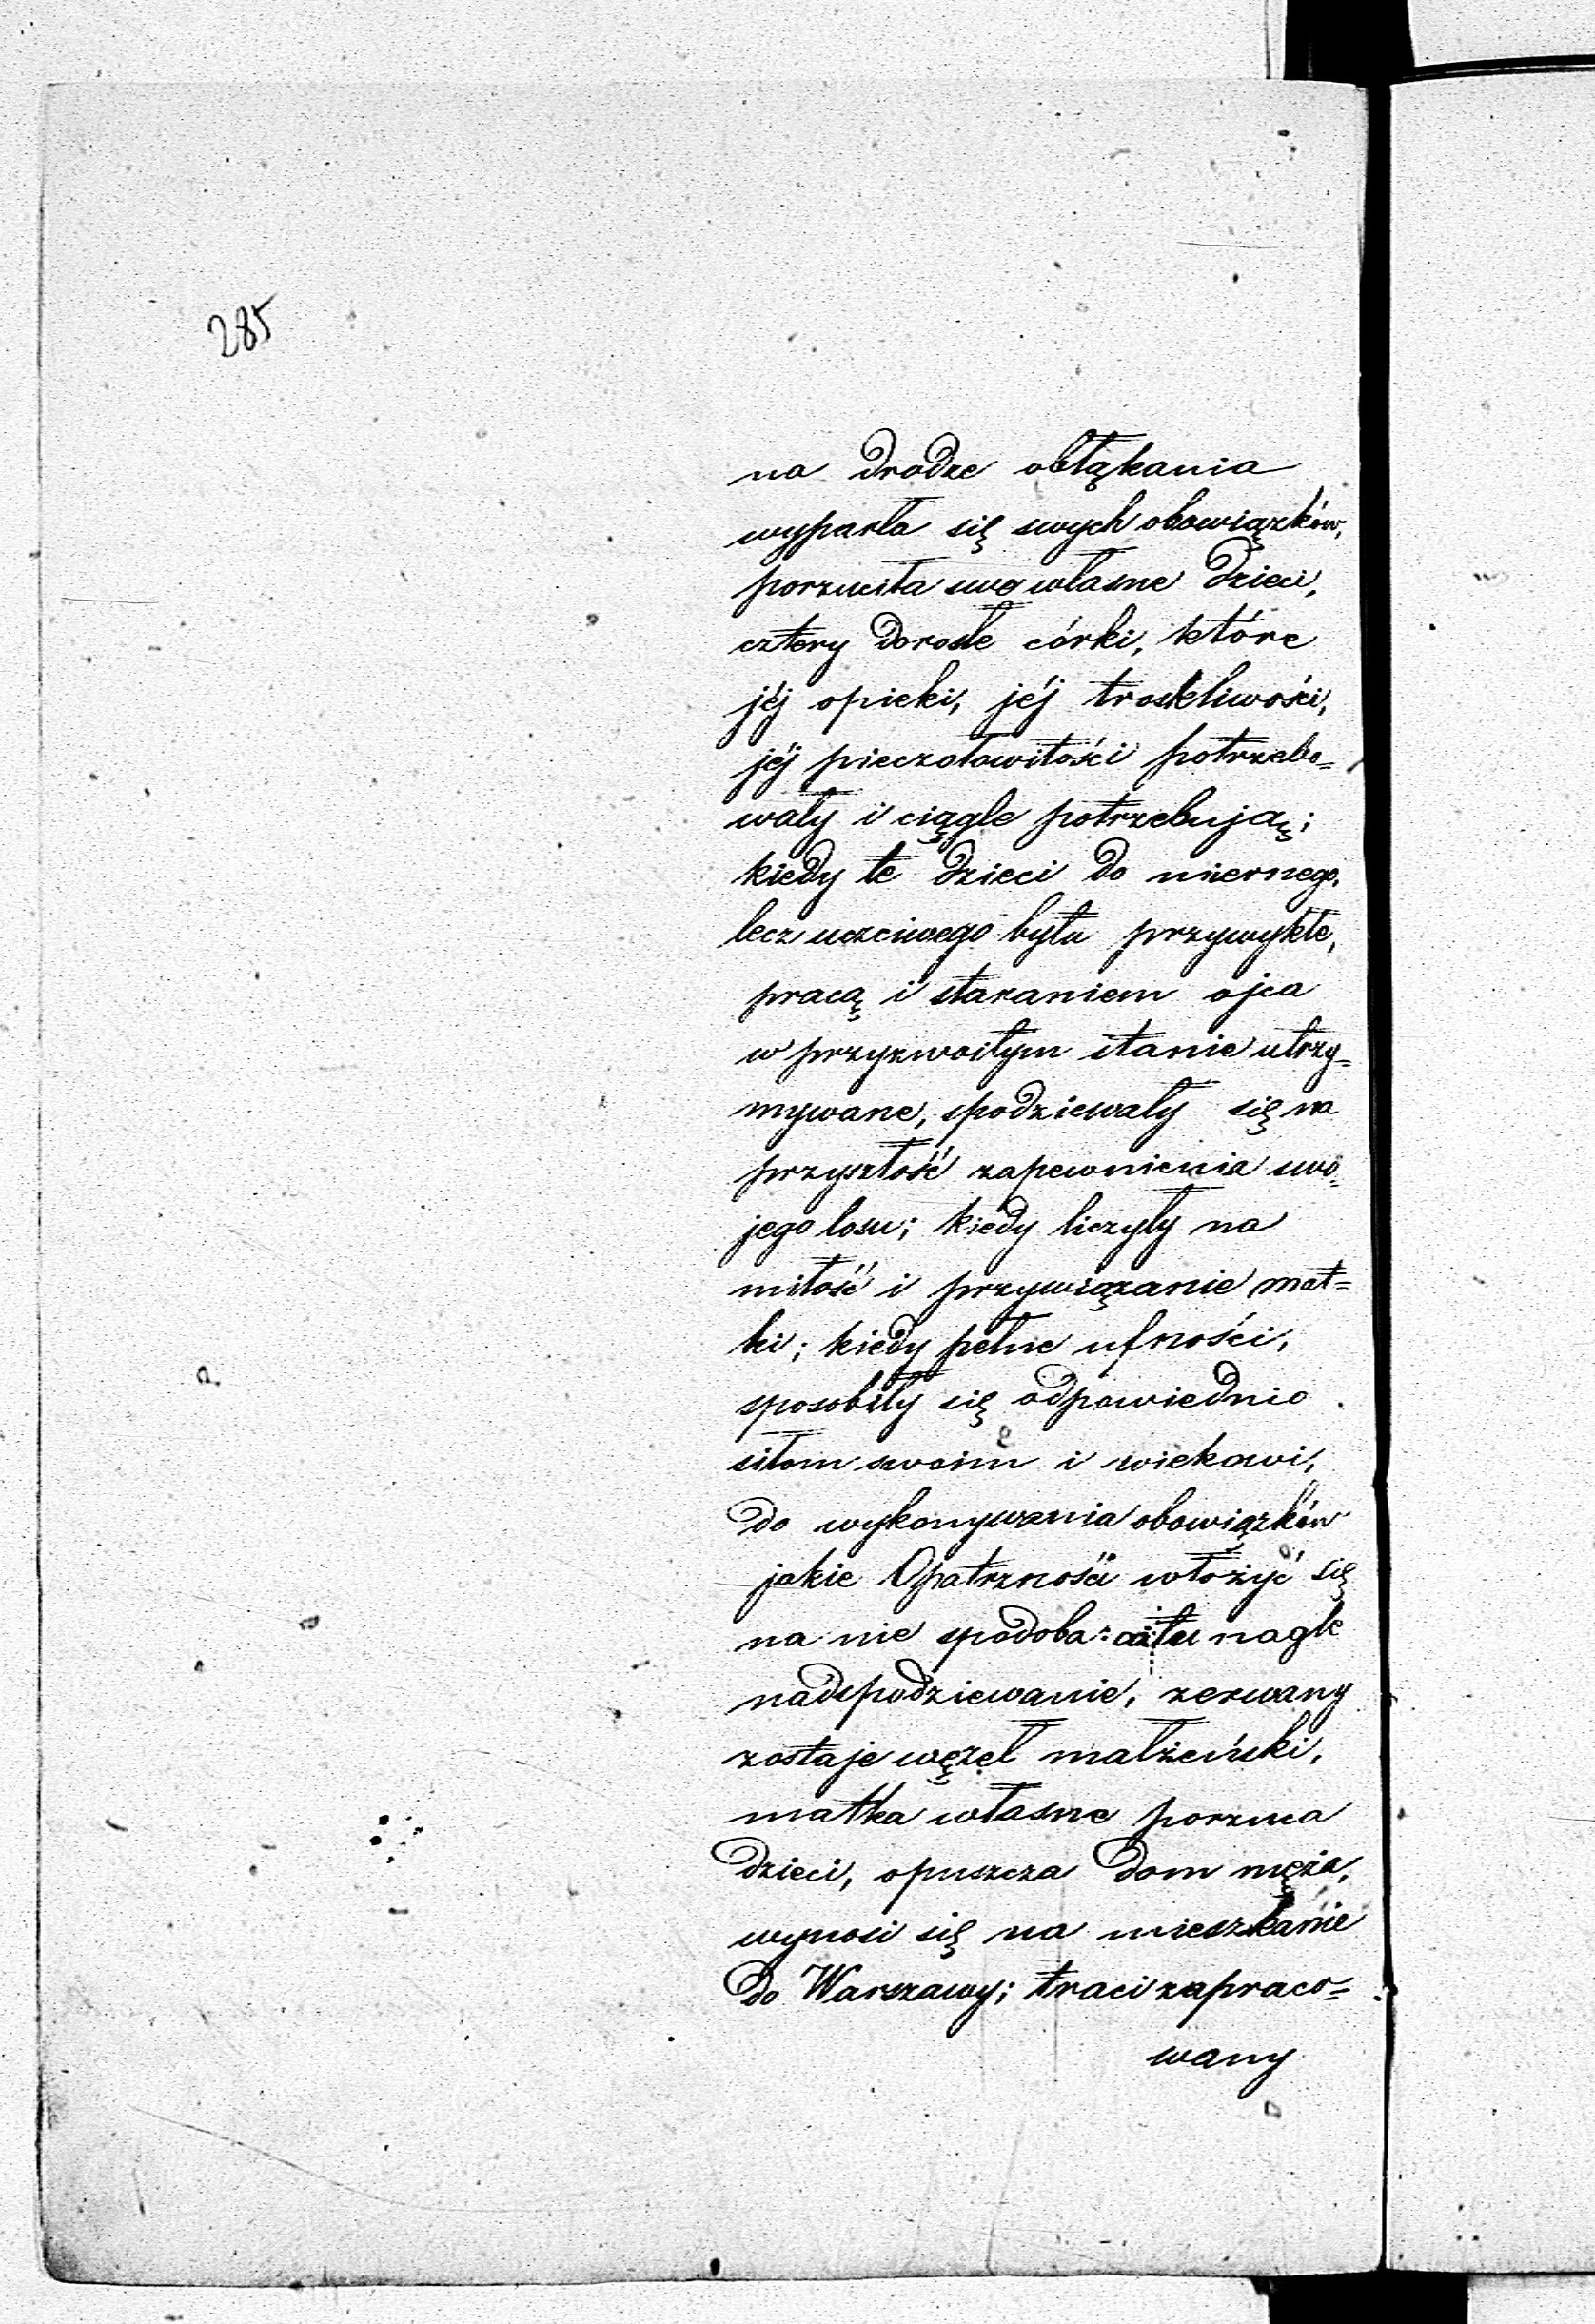 285
na drodze obłąkania
wyparła się swych obowiązków,
porzuciła swe własne dzieci,
cztery dorosłe córki, które
jéj opieki, jéj troskliwości,
jéj pieczołowitości potrzebo=
wały i ciągle potrzebują;
kiedy te dzieci do miernego,
lecz uczciwego bytu przywykłe,
pracą i staraniem ojca
w przyzwoitym stanie utrzy=
mywane, spodziewały się na
przyszłość zapewnienia swo=
jego losu; kiedy liczyły na
miłość i przywiązanie mat=
ki; kiedy pełne ufności,
sposobiły się odpowiednio
siłom swoim i wiekowi,
do wykonywania obowiązków
jakie Opatrzności włożyć się
na nie spodoba: aż tu nagle
nadspodziewanie, zerwany
zostaje węzeł małżeński,
matka własne porzuca
dzieci, opuszcza dom męża,
wynosi się na mieszkanie
do Warszawy; traci zapraco=
wany